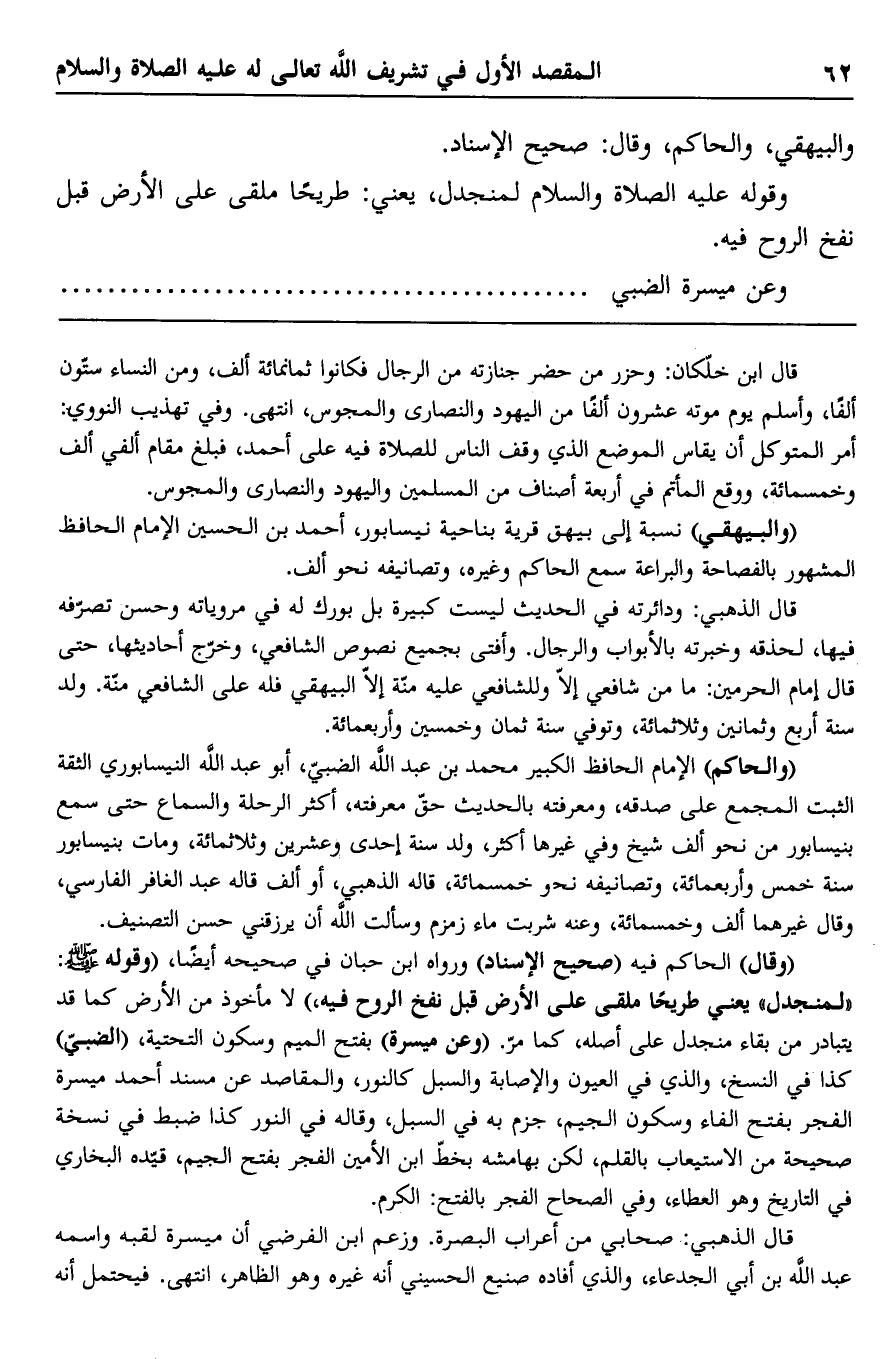 ٦٢ المقصد الأول في تشريف اللَّه تعالى له عليه الصلاة والسلام
والبيهقي، والحاكم، وقال: صحيح الإسناد.
وقوله عليه الصلاة والسلام لمنجدل، يعني: طريحًا ملقى على الأرض قبل
نفخ الروح فيه.
وعن ميسرة الضبي ............................................
قال ابن خلّكان: وحزر من حضر جنازته من الرجال فكانوا ثمانمائة ألف، ومن النساء ستّون
ألفًا، وأسلم يوم موته عشرون ألفًا من اليهود والنصارى والمجوس، انتهى. وفي تهذيب النووي:
أمر المتوكل أن يقاس الموضع الذي وقف الناس للصلاة فيه على أحمد، فبلغ مقام ألفي ألف
وخمسمائة، ووقع المأتم في أربعة أصناف من المسلمين واليهود والنصارى والمجوس.
(والبيهقي) نسبة إلى بيهق قرية بناحية نيسابور، أحمد بن الحسين الإمام الحافظ
المشهور بالفصاحة والبراعة سمع الحاكم وغيره، وتصانيفه نحو ألف.
قال الذهبي: ودائرته في الحديث ليست كبيرة بل بورك له في مروياته وحسن تصرّفه
فيها، لحذقه وخبرته بالأبواب والرجال. وأفتى بجميع نصوص الشافعي، وخرّج أحاديثها، حتى
قال إمام الحرمين: ما من شافعي إلاّ وللشافعي عليه منّة إلاّ البيهقي فله على الشافعي منّة. ولد
سنة أربع وثمانين وثلاثمائة، وتوفي سنة ثمان وخمسين وأربعمائة.
(والحاكم) الإمام الحافظ الكبير محمد بن عبد اللَّه الضبيّ، أبو عبد اللَّه النيسابوري الثقة
الثبت المجمع على صدقه، ومعرفته بالحديث حقّ معرفته، أكثر الرحلة والسماع حتى سمع
بنيسابور من نحو ألف شيخ وفي غيرها أكثر، ولد سنة إحدى وعشرين وثلاثمائة، ومات بنيسابور
سنة خمس وأربعمائة، وتصانيفه نحو خمسمائة، قاله الذهبي، أو ألف قاله عبد الغافر الفارسي،
وقال غيرهما ألف وخمسمائة، وعنه شربت ماء زمزم وسألت اللَّه أن يرزقني حسن التصنيف.
(وقال) الحاكم فيه (صحيح الإسناد) ورواه ابن حبان في صحيحه أيضًا، (وقوله ﷺ:
«لمنجدل» يعني طريحًا ملقى على الأرض قبل نفخ الروح فيه،) لا مأخوذ من الأرض كما قد
يتبادر من بقاء منجدل على أصله، كما مرّ. (وعن ميسرة) بفتح الميم وسكون التحتية، (الضبيّ)
كذا في النسخ، والذي في العيون والإصابة والسبل كالنور، والمقاصد عن مسند أحمد ميسرة
الفجر بفتح الفاء وسكون الجيم، جزم به في السبل، وقاله في النور كذا ضبط في نسخة
صحيحة من الاستيعاب بالقلم، لكن بهامشه بخطّ ابن الأمين الفجر بفتح الجيم، قيّده البخاري
في التاريخ وهو العطاء، وفي الصحاح الفجر بالفتح: الكرم.
قال الذهبي: صحابي من أعراب البصرة. وزعم ابن الفرضي أن ميسرة لقبه واسمه
عبد اللَّه بن أبي الجدعاء، والذي أفاده صنيع الحسيني أنه غيره وهو الظاهر، انتهى. فيحتمل أنه